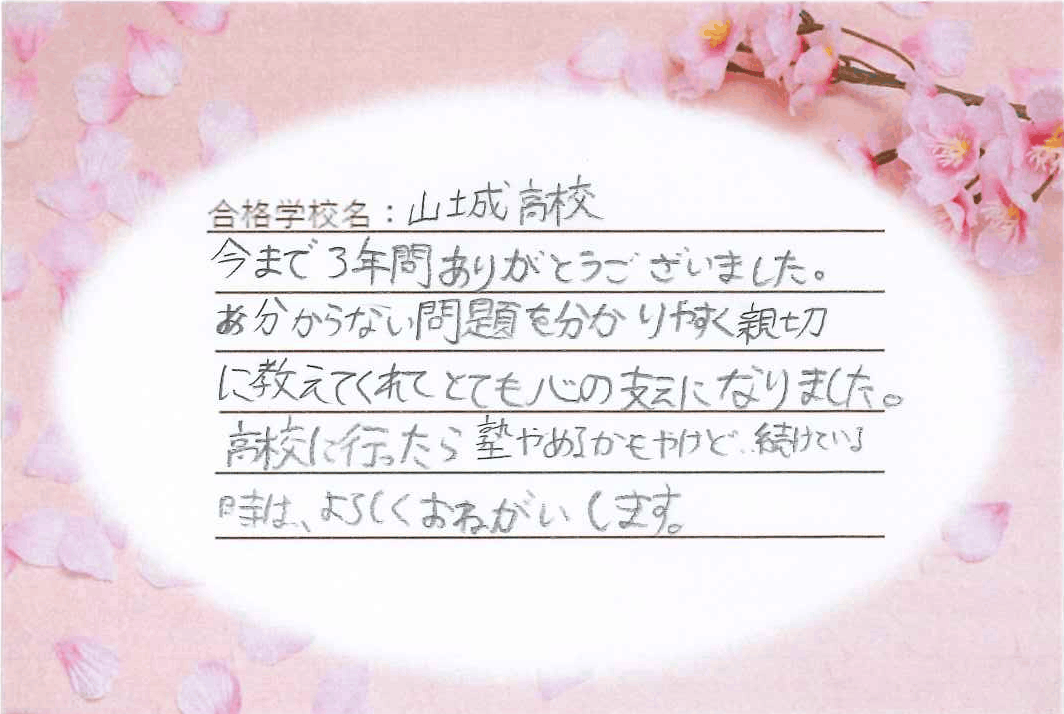 合格学校名：山城高校
今まで3年間ありがとうございました。
分からない問題を分かりやすく親切
に教えてくれてとても心の支えになりました。
高校に行ったら塾やめるかもやけど‥続けている
時は、よろしくおねがいします。